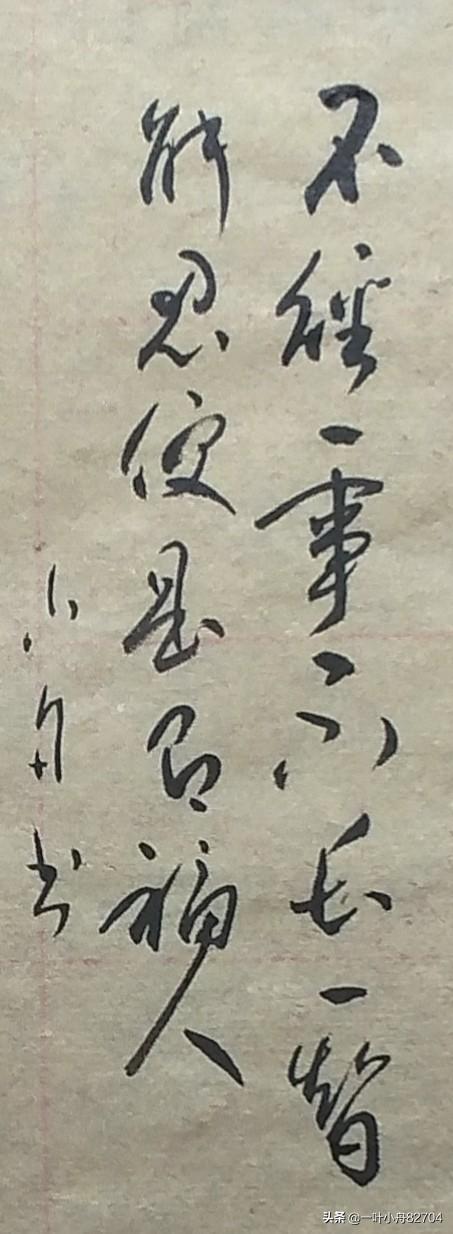 不經一事不長一智
解忍便是福人
小舟书
头条 @一叶小舟82704